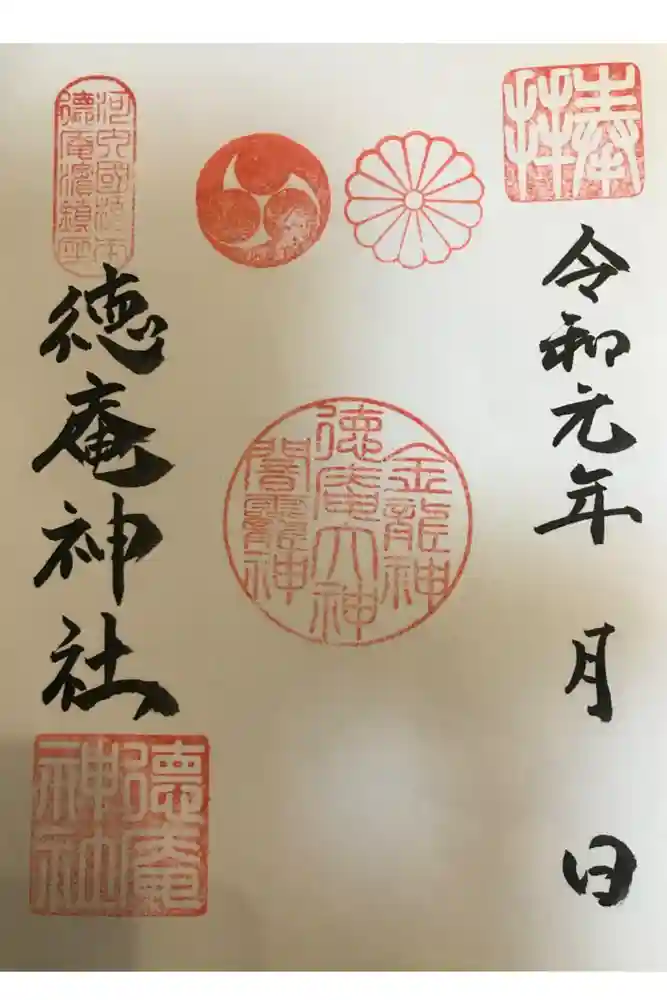 奉拝
令和元年 月 日
金龍神
徳庵大神
闇龗神
徳庵濱鎮座
徳庵神社
徳庵神社